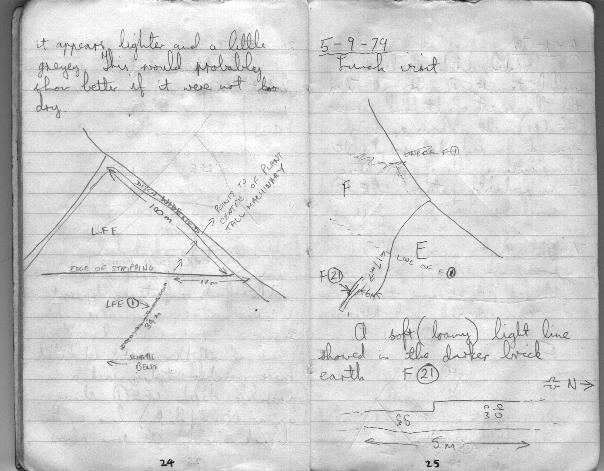 it appears lighter and a little
greyey. This would probably
show better if it were not too
dry.
DITCH
100m
POINTS TO
CENTRE OF PLANT
TALL MACHINARY
LFE
EDGE OF STRIPPING
LFE ①
34m
24
5-9-79
Lunch visit
LINE OF F①
F
E
LINE OF E①
F㉑
A soft (loamy) light line
showed in the darker brick
earth F㉑
N →
5m
25